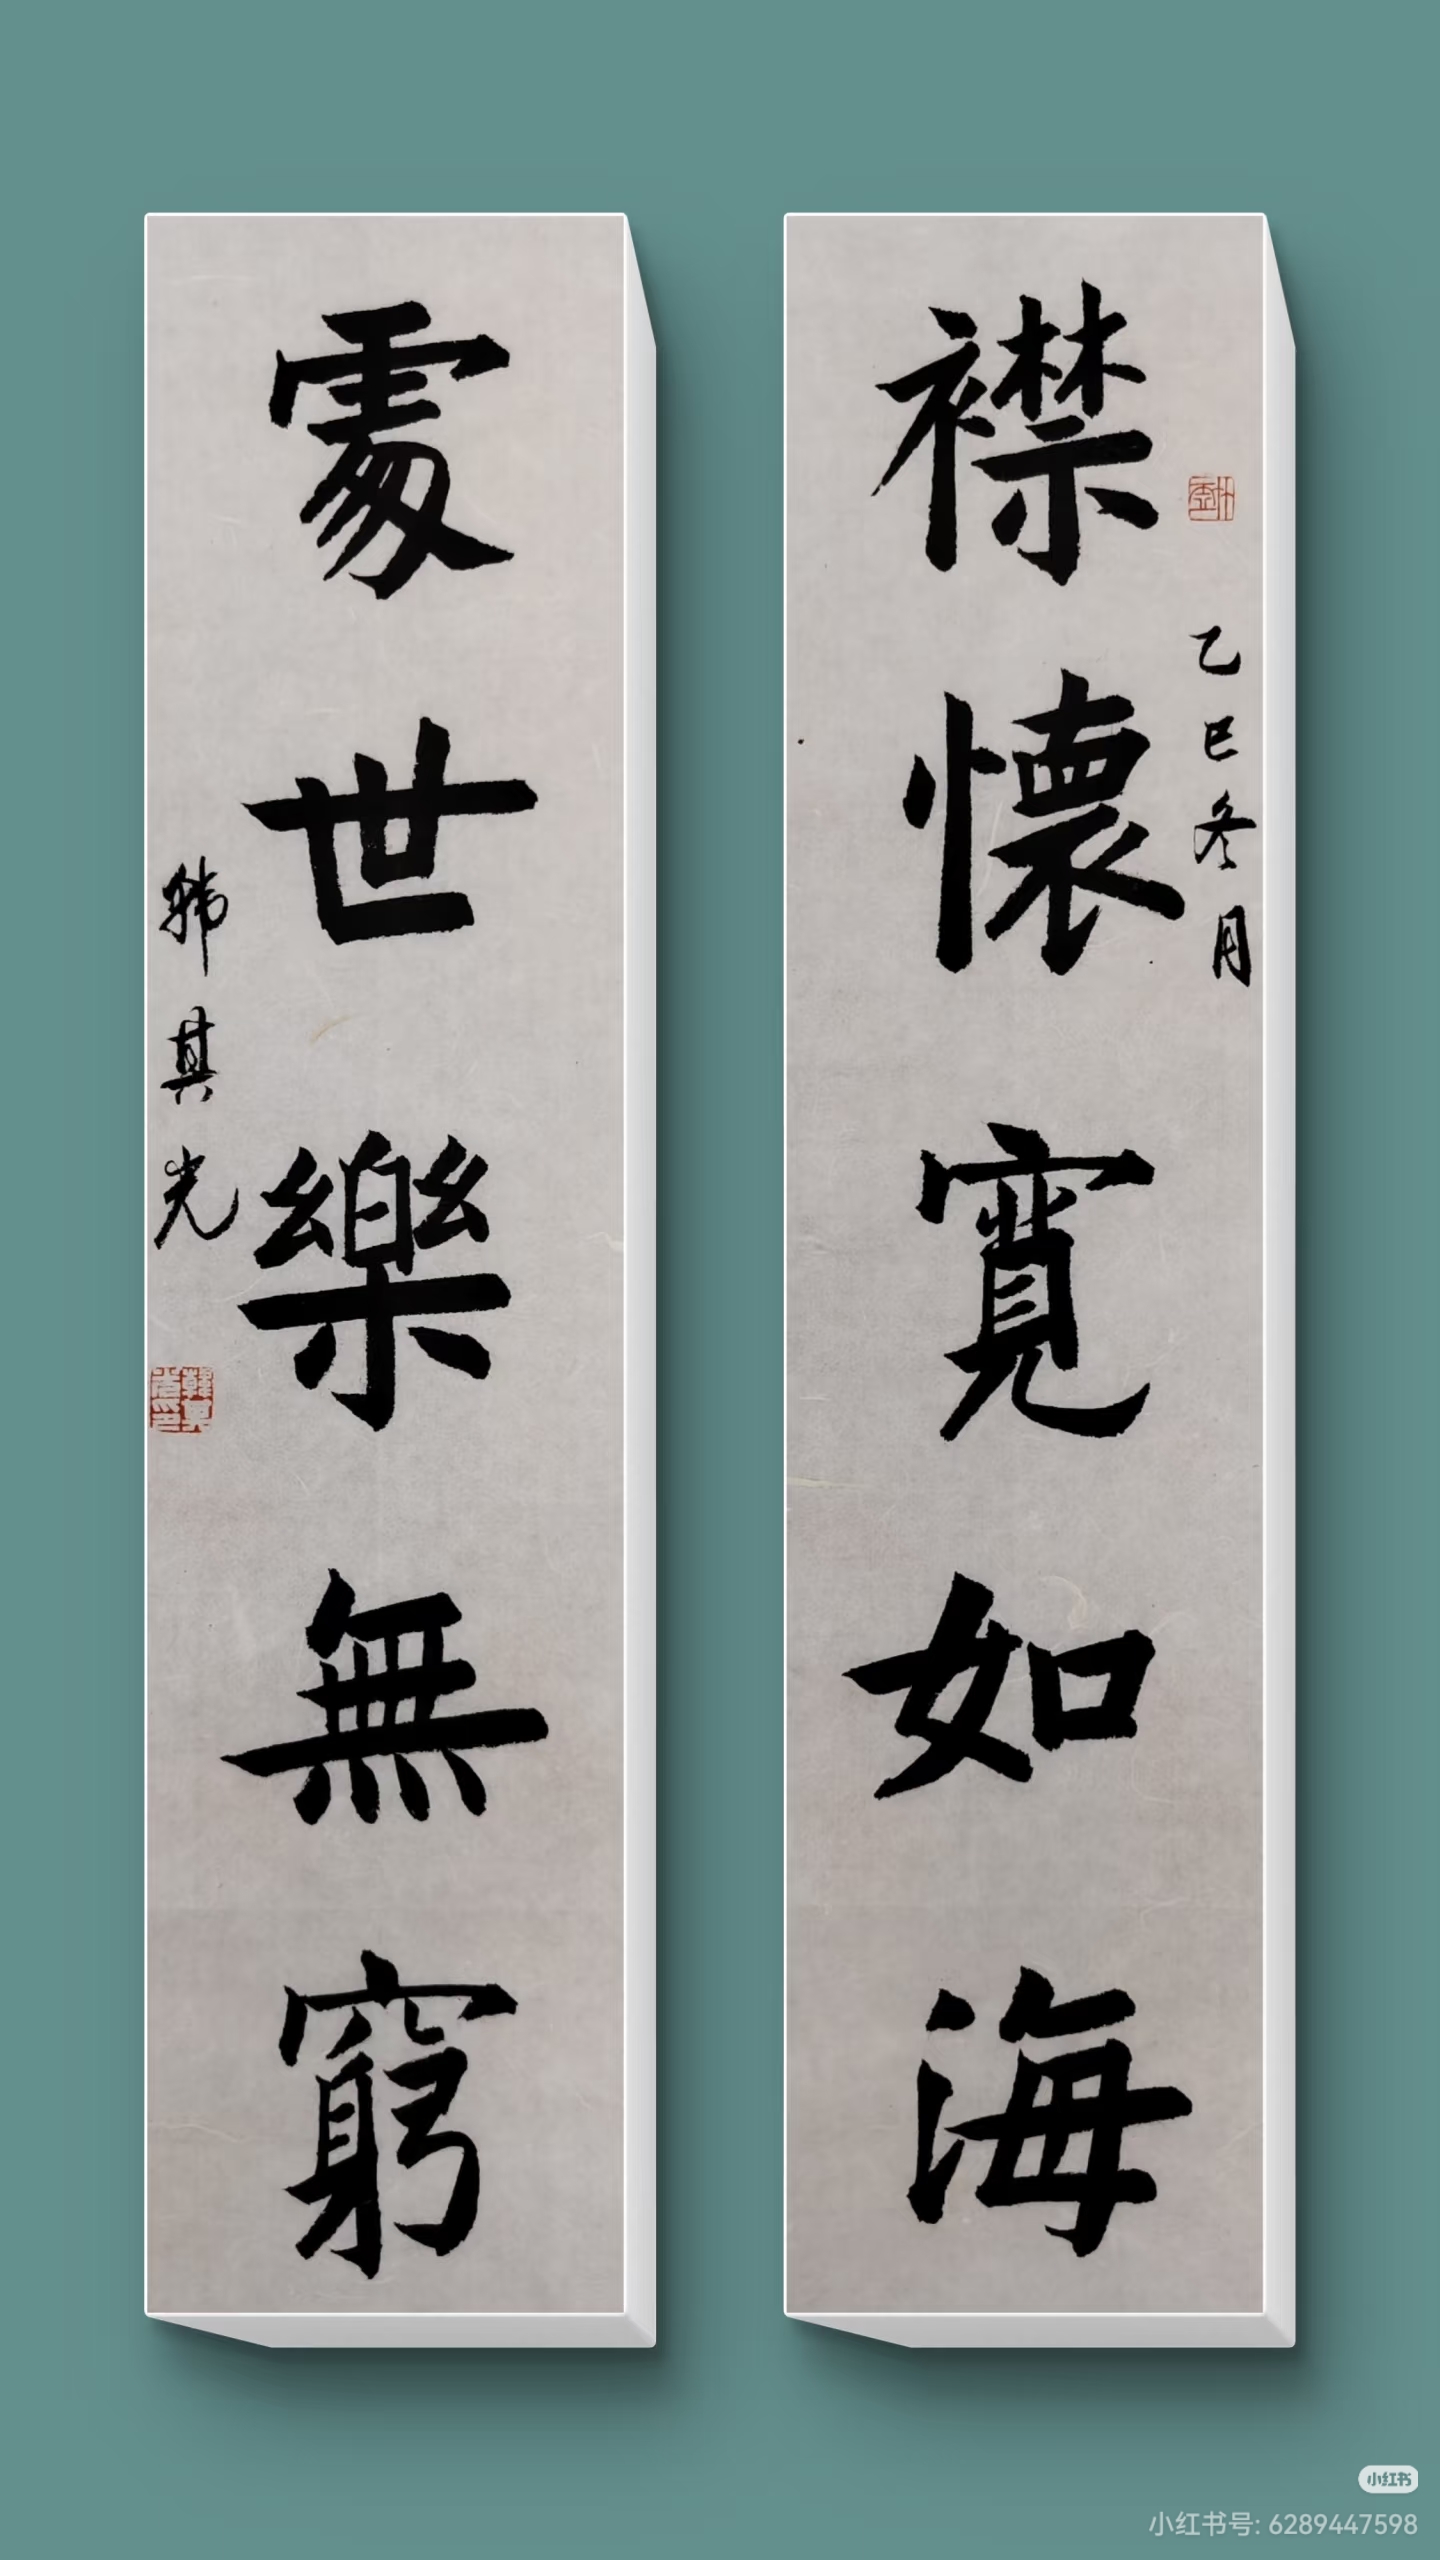 襟懷寬如海
乙巳冬月
處世樂無窮
韩其光
小红书
小红书号: 6289447598